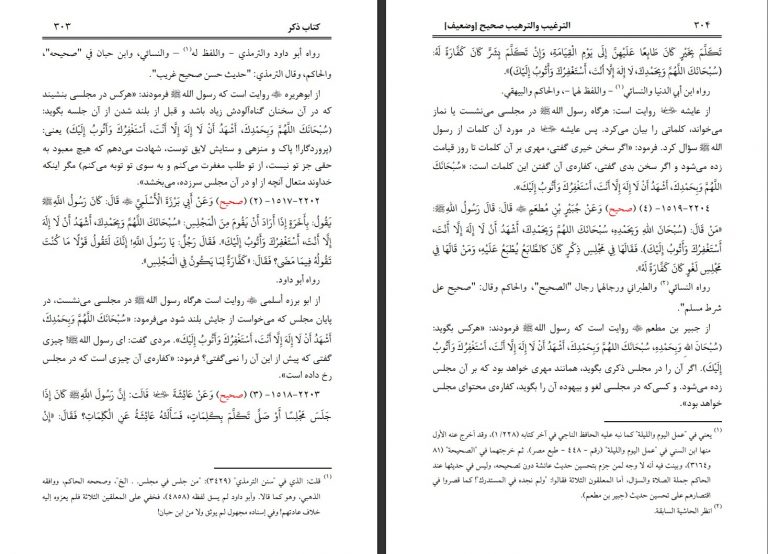 کتاب ذکر
۳۰۳
رواه أبو داود والترمذي - واللفظ له(۱) – والنسائي، وابن حبان في "صحیحه"،
والحاکم، وقال الترمذي: "حدیث حسن صحیح غریب".
از ابوهریره ﷺ روایت است که رسول الله ﷺ فرمودند: «هرکس در مجلسی بنشیند
که در آن سخنان گناه‌آلودش زیاد باشد و قبل از بلند شدن از آن جلسه بگوید:
(سُبْحَانَكَ اللَّهُمَّ وَبِحَمْدِكَ، أَشْهَدُ أَنْ لَا إِلَهَ إِلَّا أَنْتَ، أَسْتَغْفِرُكَ وَأَتُوبُ إِلَيْكَ) یعنی:
(پروردگارا! پاک و منزهی و ستایش لایق توست، شهادت می‌دهم که هیچ معبود به
حقی جز تو نیست، از تو طلب مغفرت می‌کنم و به سوی تو توبه می‌کنم) مگر اینکه
خداوند متعال آنچه از او در آن مجلس سرزده، می‌بخشد».
۲۲۰۲-۱۵۱۷- (۲) (صحیح) وَعَنْ أَبِي بَرْزَةَ الأَسْلَمِيِّ ﷺ قَالَ: كَانَ رَسُولُ اللَّهِ ﷺ
يَقُولُ: بِأَخَرَةٍ إِذَا أَرَادَ أَنْ يَقُومَ مِنَ الْمَجْلِسِ: «سُبْحَانَكَ اللَّهُمَّ وَبِحَمْدِكَ، أَشْهَدُ أَنْ لَا إِلَهَ
إِلَّا أَنْتَ، أَسْتَغْفِرُكَ وَأَتُوبُ إِلَيْكَ». فَقَالَ رَجُلٌ: يَا رَسُولَ اللَّهِ! إِنَّكَ لَتَقُولُ قَوْلًا مَا كُنْتَ
تَقُولُهُ فِيمَا مَضَى؟ فَقَالَ: «كَفَّارَةٌ لِمَا يَكُونُ فِي الْمَجْلِسِ».
رواه أبو داود.
از ابو برزه أسلمی ﷺ روایت است هرگاه رسول الله ﷺ در مجلسی می‌نشست، در
پایان مجلس که می‌خواست از جایش بلند شود می‌فرمود: «سُبْحَانَكَ اللَّهُمَّ وَبِحَمْدِكَ،
أَشْهَدُ أَنْ لَا إِلَهَ إِلَّا أَنْتَ، أَسْتَغْفِرُكَ وَأَتُوبُ إِلَيْكَ». مردی گفت: ای رسول الله! چیزی
گفتی که پیش از این آن را نمی‌گفتی؟ فرمود: «کفاره‌ی آن چیزی است که در مجلس
رخ داده است».
۲۲۰۳-۱۵۱۸- (۳) (صحیح) وَعَنْ عَائِشَةَ ﷺ قَالَت: إِنَّ رَسُولَ اللَّهِ ﷺ كَانَ إِذَا
جَلَسَ مَجْلِسًا أَوْ صَلَّى تَكَلَّمَ بِكَلِمَاتٍ، فَسَأَلَتْهُ عَائِشَةُ عَنِ الْكَلِمَاتِ؟ فَقَالَ: «إِنْ
(۱) قلت: الذي في "سنن الترمذي" (۳۴۲۹): "من جلس في مجلس.. الخ"، وصححه الحاکم، ووافقه
الذهبي، وهو كما قالا. وأبو داود لم يسق لفظه (۴۸۵۸)، فخفي على المعلقين الثلاثة فلم يعزوه إليه
خلاف عادتهم! وفي إسناده مجهول لم يوثق ولا من ابن حبان!
۳۰۴
الترغيب والترهيب صحيح [وضعيف]
تَكَلَّمَ بِخَيْرٍ كَانَ طَابِعًا عَلَيْهِنَّ إِلَى يَوْمِ الْقِيَامَةِ، وَإِنْ تَكَلَّمَ بِشَرٍّ كَانَ كَفَّارَةً لَهُ:
(سُبْحَانَكَ اللَّهُمَّ وَبِحَمْدِكَ، لَا إِلَهَ إِلَّا أَنْتَ، أَسْتَغْفِرُكَ وَأَتُوبُ إِلَيْكَ)».
رواه ابن أبي الدنيا والنسائي(۱) - واللفظ لهما -، والحاكم والبيهقي.
از عایشه ﷺ روایت است: هرگاه رسول الله ﷺ در مجلسی می‌نشست و یا نماز
می‌خواند، کلماتی را بیان می‌کرد. پس عایشه ﷺ در مورد آن کلمات از رسول
الله ﷺ سؤال کرد. فرمود: «اگر سخن خیری گفتی، مهری بر آن کلمات تا روز قیامت
زده می‌شود و اگر سخن بدی گفتی، کفاره‌ی آن گفتن این کلمات است: «سُبْحَانَكَ
اللَّهُمَّ وَبِحَمْدِكَ، لَا إِلَهَ إِلَّا أَنْتَ، أَسْتَغْفِرُكَ وَأَتُوبُ إِلَيْكَ)».
۲۲۰۴-۱۵۱۹- (۴) (صحیح) وَعَنْ جُبَيْرِ بْنِ مُطْعِمٍ ﷺ قَالَ: قَالَ رَسُولُ اللَّهِ ﷺ:
«مَنْ قَالَ: (سُبْحَانَ اللَّهِ وَبِحَمْدِهِ، سُبْحَانَكَ اللَّهُمَّ وَبِحَمْدِكَ، أَشْهَدُ أَنْ لَا إِلَهَ إِلَّا أَنْتَ،
أَسْتَغْفِرُكَ وَأَتُوبُ إِلَيْكَ). فَقَالَهَا فِي مَجْلِسِ ذِكْرٍ كَانَ كَالطَّابَعِ يُطْبَعُ عَلَيْهِ، وَمَنْ قَالَهَا فِي
مَجْلِسِ لَغْوٍ كَانَ كَفَّارَةً لَهُ».
رواه النسائي(۲) والطبراني ورجالهما رجال "الصحيح"، والحاكم وقال: "صحيح على
شرط مسلم".
از جبیر بن مطعم ﷺ روایت است که رسول الله ﷺ فرمودند: «هرکس بگوید:
(سُبْحَانَ اللَّهِ وَبِحَمْدِهِ، سُبْحَانَكَ اللَّهُمَّ وَبِحَمْدِكَ، أَشْهَدُ أَنْ لَا إِلَهَ إِلَّا أَنْتَ، أَسْتَغْفِرُكَ وَأَتُوبُ
إِلَيْكَ). اگر آن را در مجلس ذکری بگوید، همانند مهری خواهد بود که بر آن مجلس
زده می‌شود. و کسی‌که در مجلسی لغو و بیهوده آن را بگوید، کفاره‌ی محتوای مجلس
خواهد بود».
(۱) يعني في "عمل اليوم والليلة" كما نبه عليه الحافظ الناجي في آخر كتابه (۲۲۸/۱)، وقد أخرج عنه الأول
منها ابن السني في "عمل اليوم والليلة" (رقم - ۴۴۸ - طبع مصر). ثم خرجتهما في "الصحيحة" (۸۱
و۳۱۶۴)، وبينت فيه أنه لا وجه لمن جزم بتحسين حديث عائشة دون تصحيحه، وليس في حديثها عند
الحاكم جملة الصلاة والسؤال، أما المعلقون الثلاثة فقالوا: "ولم نجده في المستدرك"! كما قصروا في
اقتصارهم على تحسين حديث (جبير بن مطعم).
(۲) انظر الحاشية السابقة.